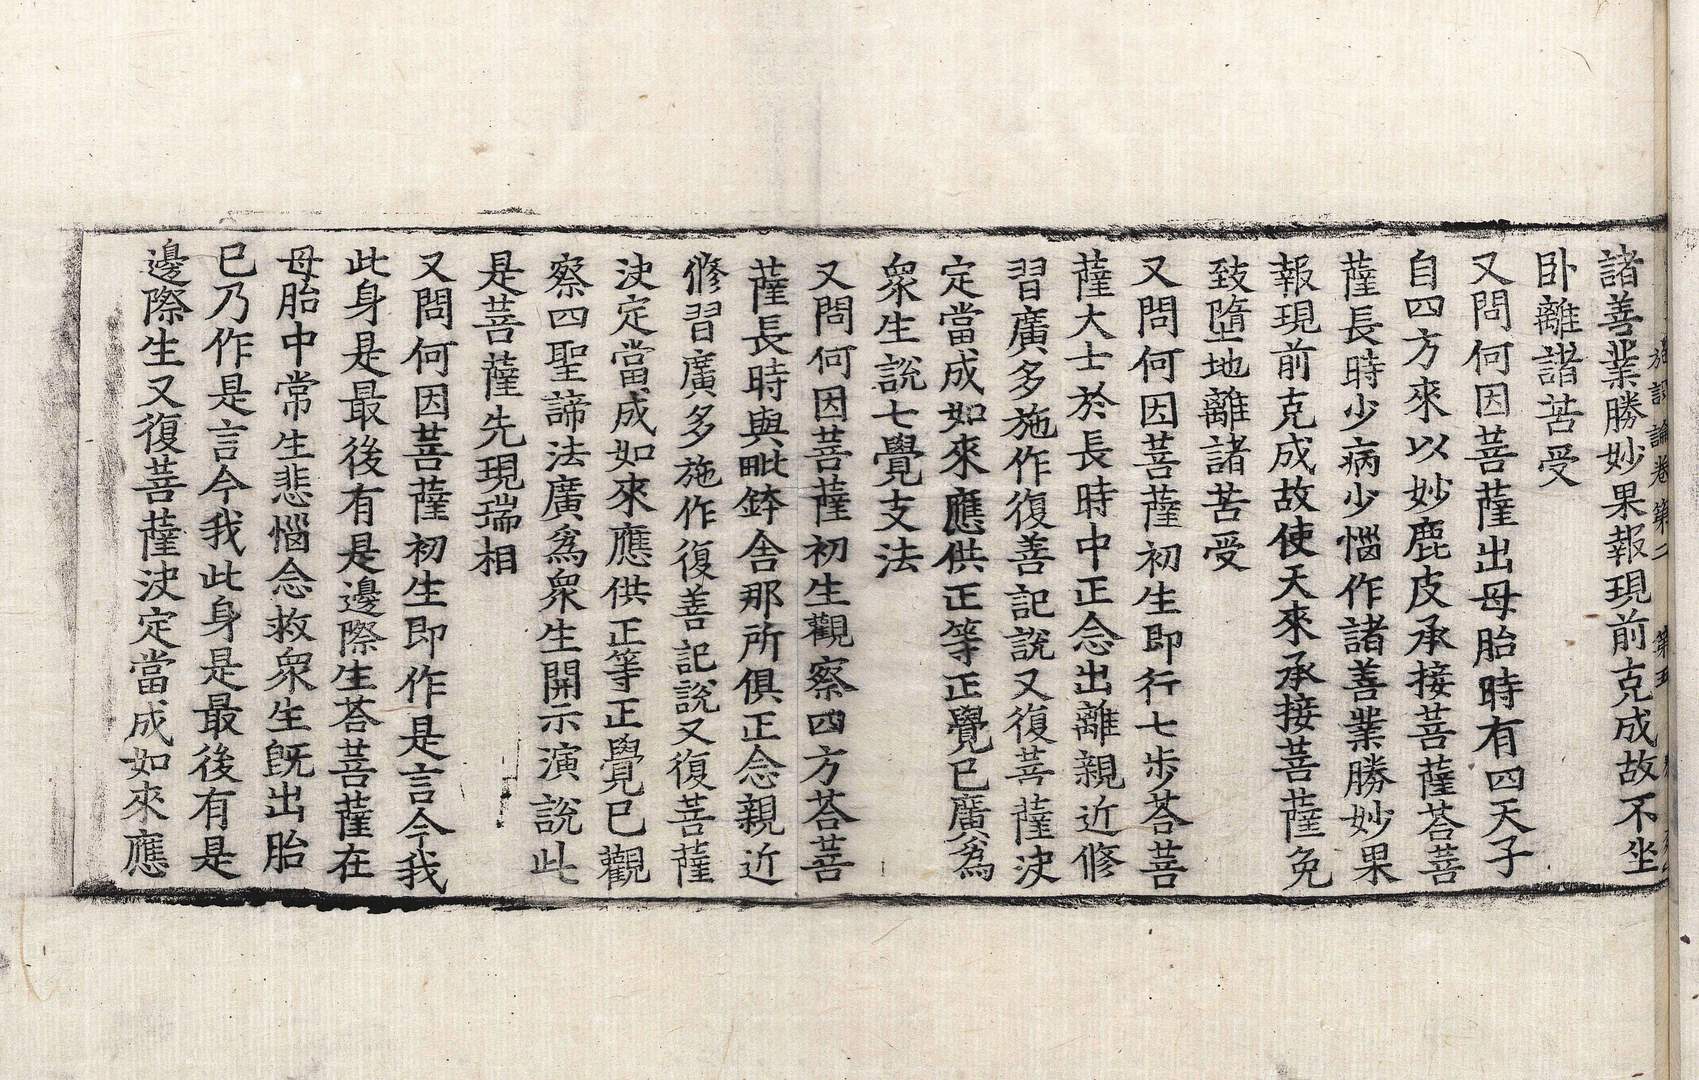 諸善業勝妙果報現前克成故不坐
卧離諸苦受
又問何因菩薩出母胎時有四天子
自四方來以妙鹿皮承接菩薩荅菩
薩長時少病少惱作諸善業勝妙果
報現前克成故使天來承接菩薩免
致墮地離諸苦受
又問何因菩薩初生即行七步荅菩
薩大士於長時中正念出離親近修
習廣多施作復善記說又復菩薩決
定當成如來應供正等正覺已廣爲
衆生說七覺支法
又問何因菩薩初生觀察四方荅菩
薩長時與毗鉢舍那所俱正念親近
修習廣多施作復善記說又復菩薩
決定當成如來應供正等正覺已觀
察四聖諦法廣爲衆生開示演說此
是菩薩先現瑞相
又問何因菩薩初生即作是言今我
此身是最後有是邊際生荅菩薩在
母胎中常生悲惱念救衆生旣出胎
已乃作是言今我此身是最後有是
邊際生又復菩薩決定當成如來應
施設論卷第二 第五